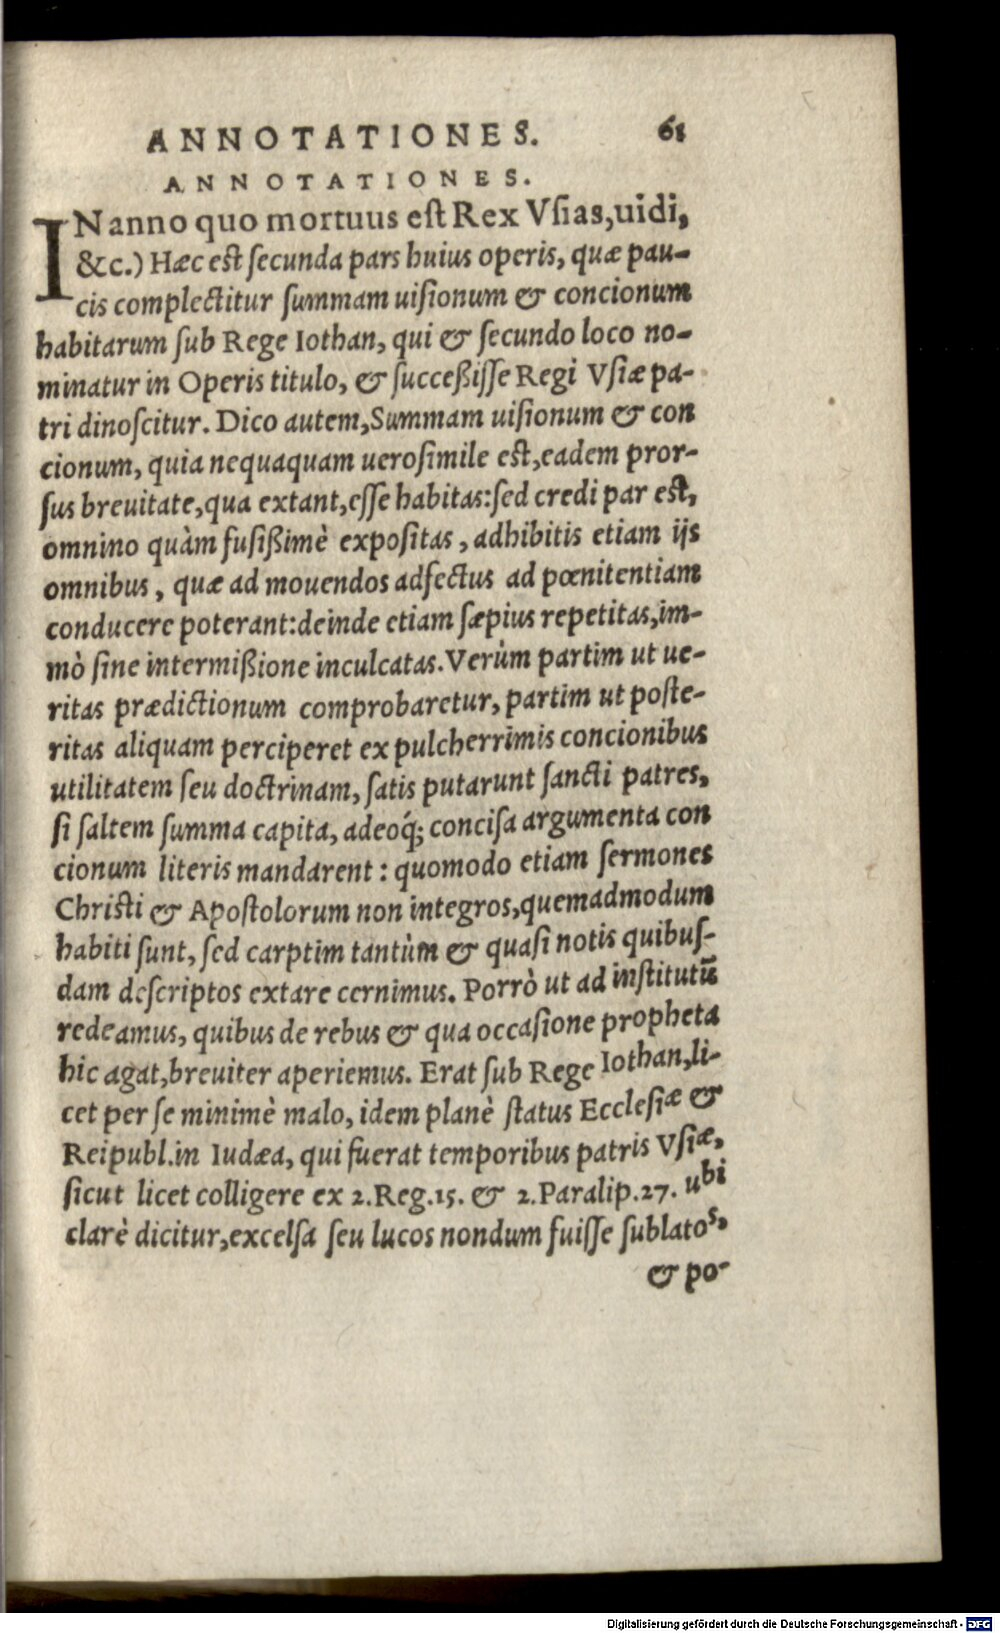 ANNOTATIONES. 61
ANNOTATIONES.
IN anno quo mortuus eſt Rex Vſias,uidi,
&c.) Hæc eſt ſecunda pars huius operis, quæ pau-
cis complectitur ſummam uiſionum & concionum
habitarum ſub Rege Iothan, qui & ſecundo loco no-
minatur in Operis titulo, & ſucceßiſſe Regi Vſiæ pa-
tri dinoſcitur. Dico autem,Summam uiſionum & con
cionum, quia nequaquam ueroſimile eſt,eadem pror-
ſus breuitate,qua extant,eſſe habitas:ſed credi par eſt,
omnino quàm fuſißimè expoſitas, adhibitis etiam ijs
omnibus, quæ ad mouendos adfectus ad pœnitentiam
conducere poterant:deinde etiam ſæpius repetitas,im-
mò ſine intermißione inculcatas.Verùm partim ut ue-
ritas prædictionum comprobaretur, partim ut poſte-
ritas aliquam perciperet ex pulcherrimis concionibus
utilitatem ſeu doctrinam, ſatis putarunt ſancti patres,
ſi ſaltem ſumma capita, adeoq́; conciſa argumenta con
cionum literis mandarent: quomodo etiam ſermones
Chriſti & Apoſtolorum non integros,quemadmodum
habiti ſunt, ſed carptim tantùm & quaſi notis quibuſ-
dam deſcriptos extare cernimus. Porrò ut ad inſtitutū
redeamus, quibus de rebus & qua occaſione propheta
hic agat,breuiter aperiemus. Erat ſub Rege Iothan,li-
cet per ſe minimè malo, idem planè ſtatus Eccleſiæ &
Reipubl.in Iudæa, qui fuerat temporibus patris Vſiæ,
ſicut licet colligere ex 2.Reg.15. & 2.Paralip.27. ubi
clarè dicitur,excelſa ſeu lucos nondum fuiſſe ſublatos,
& po-
Digitalisierung gefördert durch die Deutsche Forschungsgemeinschaft - DFG